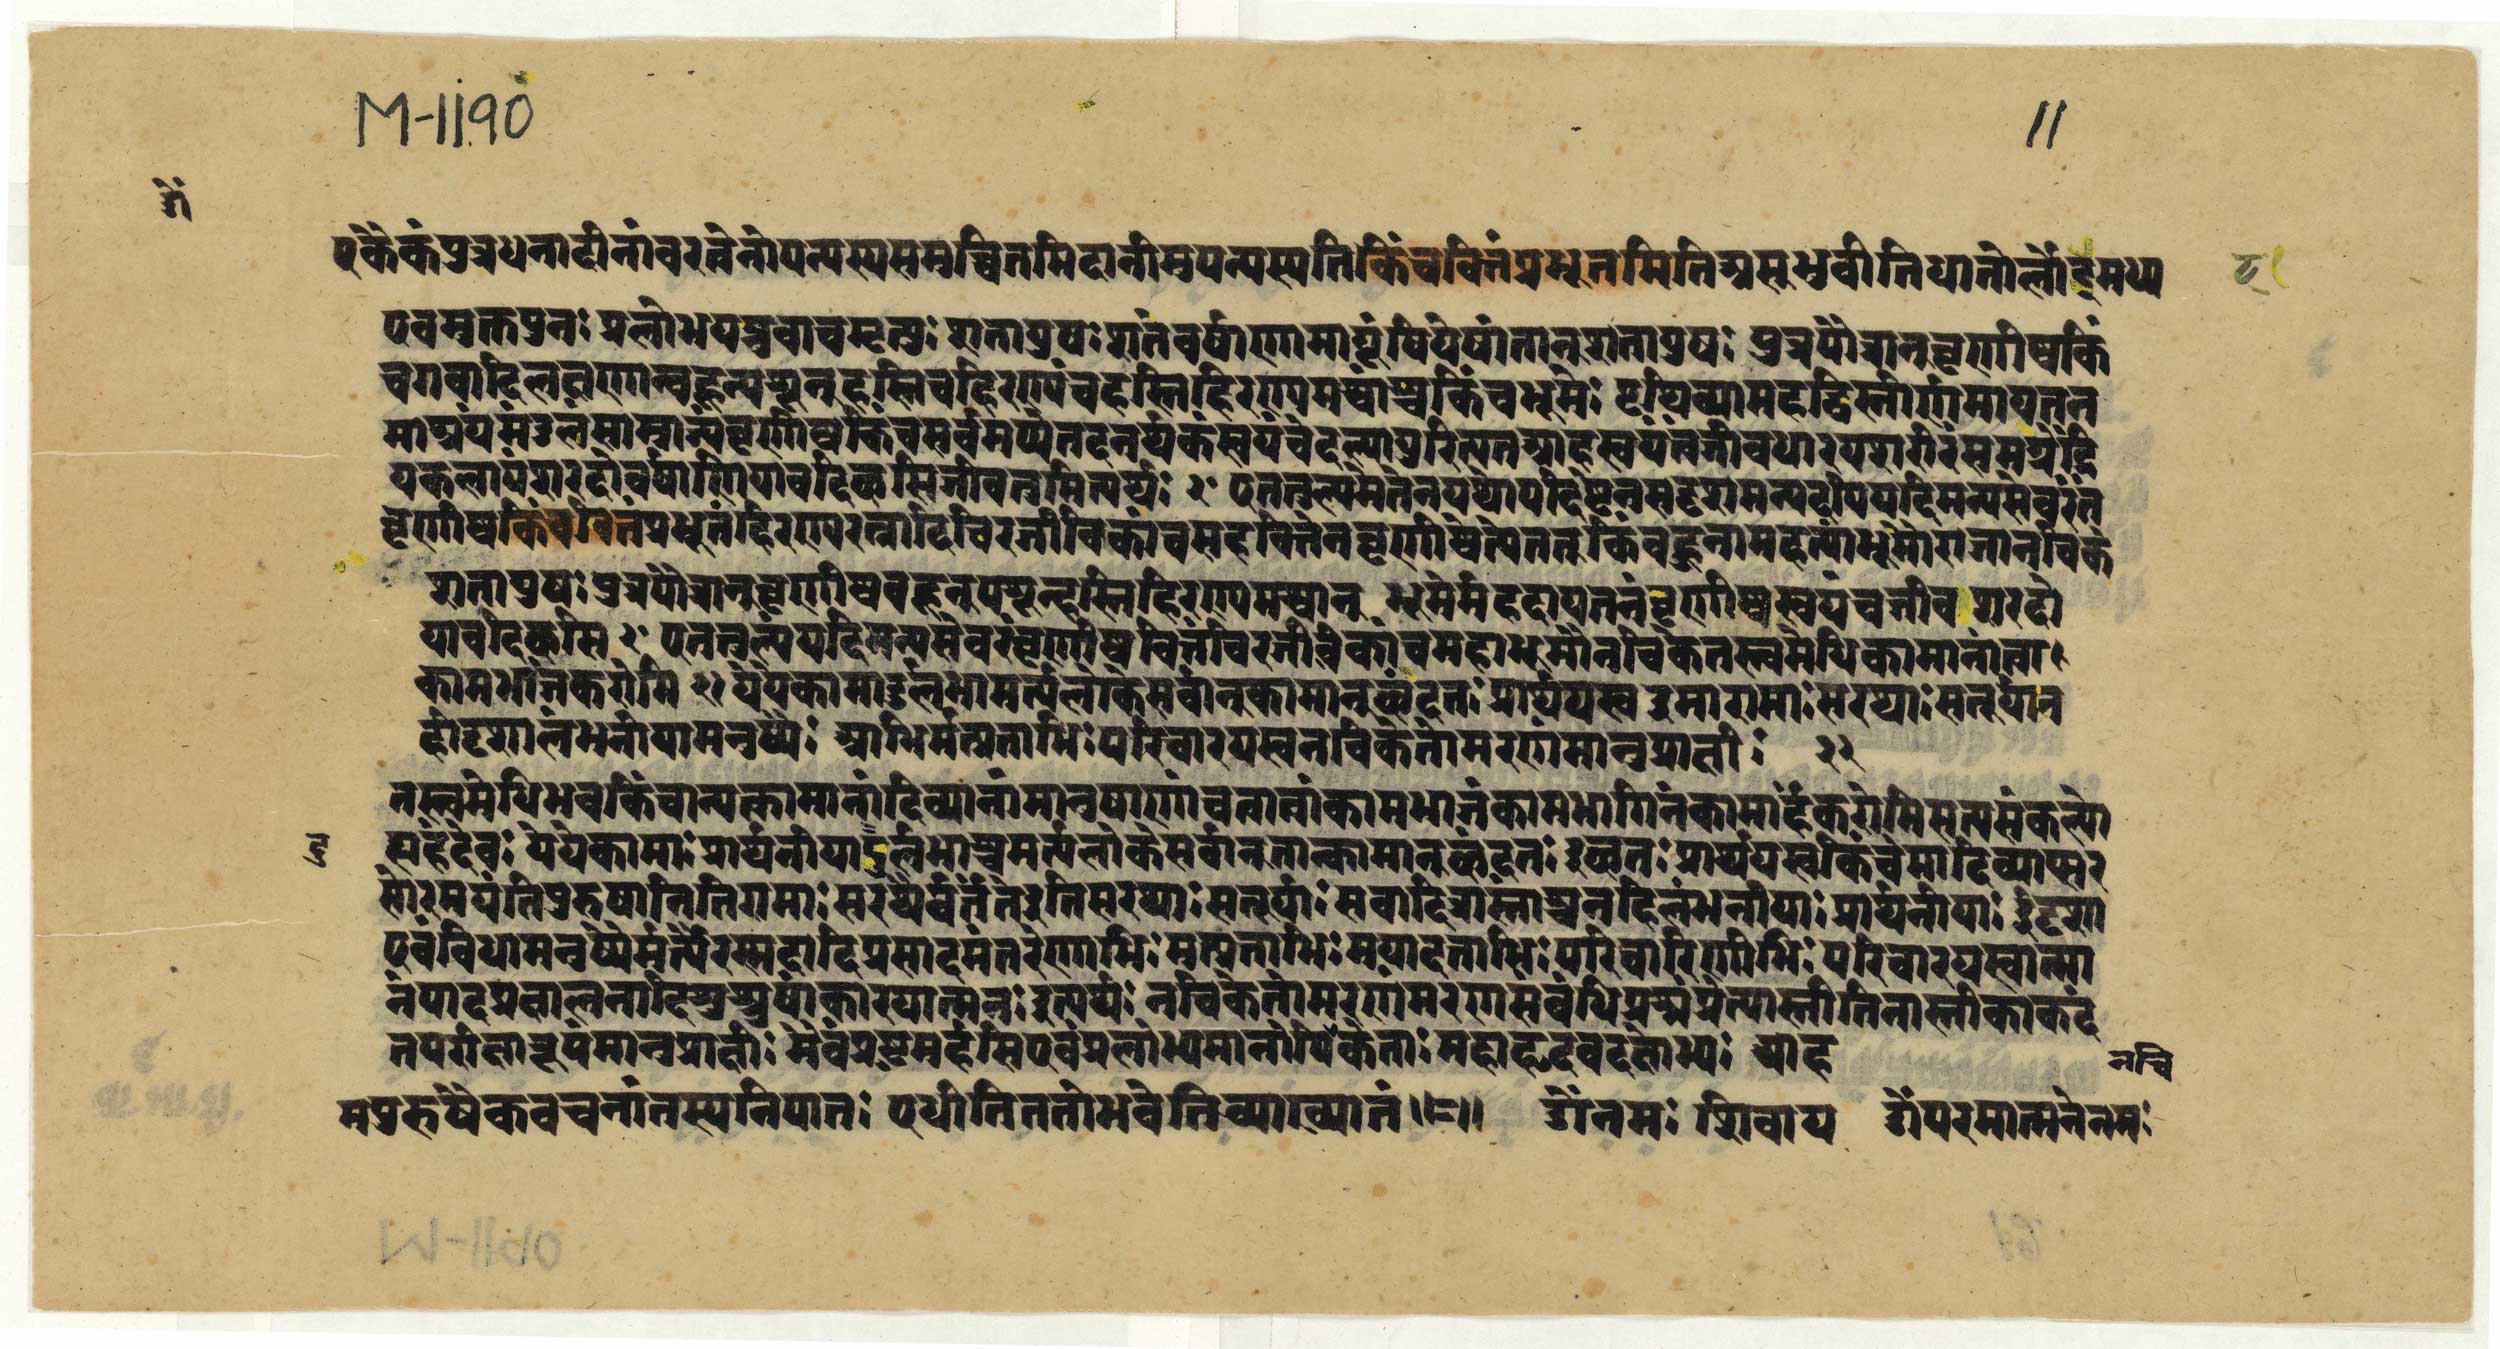 M-1190
11
ॐ
एकैकंपुत्रधनादीनांवरत्वेनोपन्यस्यसमुच्चितमिदानीमुपन्यस्यतिकिंचवित्तंप्रभूतमितिअसभुवीतिधातोर्लोण्मध्य
एवमुक्तपुनः प्रलोभयन्नुवाचमृत्युः शतायुषः शतंवर्षाणामायूंषियेषांतान्शतायुषः पुत्रपौत्रान्वृणीष्वकिं
चगवादिलक्षणान्बहून्पशून्हस्तिचहिरण्यंचहस्तिहिरण्यमश्वांश्चकिंचभूमेः पृथिव्यामहद्विस्तीर्णमायतन
माश्रयंमंडलंसाम्राज्यंवृणीष्वकिंचसर्वमप्येतदनर्थकंस्वयंचेदल्पायुरित्यतआहस्वयंचजीवधारयशरीरंसमग्रेंद्रि
यकलापंशरदोवर्षाणियावदिच्छसिजीवितुमित्यर्थः एतत्तुल्यमेतेनयथोपदिष्टेनसदृशमन्यदपियदिमन्यसेवरंतं
वृणीष्वकिंचवित्तंप्रभूतंहिरण्यरत्नादिचिरजीविकांचसहवित्तेनवृणीष्वेत्येतत्किंबहुनामहत्यांभूमौराजानचिके
शतायुषः पुत्रपौत्रान्वृणीष्वबहून्पशून्हस्तिहिरण्यमश्वान् भूमेर्महदायतनंवृणीष्वस्वयंचजीव शरदो
यावदिच्छसि एतत्तुल्यंयदिमन्यसेवरंवृणीष्ववित्तंचिरजीविकांचमहाभूमौनचिकेतस्त्वमेधिकामानांत्वा
कामभाजंकरोमि येयेकामादुर्लभामर्त्यलोकेसर्वान्कामान्छंदतः प्रार्थयस्व इमारामाः सरथाः सतूर्यान
हीदृशालंभनीयामनुष्यैः आभिर्मत्प्रत्ताभिः परिचारयस्वनचिकेतोमरणंमानुप्राक्षीः २२
तस्त्वमेधिभवकिंचान्यत्कामानांदिव्यानांमानुषाणांचत्वात्वांकामभाजंकामभागिनंकामार्हंकरोमिसत्यसंकल्पो
ह्यहंदेवः येयेकामाः प्रार्थनीयादुर्लभाश्चमर्त्यलोकेसर्वांस्तान्कामान्छंदतः इच्छातः प्रार्थयस्वकिंचेमादिव्याप्सर
सोरमयंतिपुरुषानितिरामाः सरथैर्वर्तंतइतिसरथाः सतूर्याः सवादित्रास्ताश्चनहिलंभनीयाः प्रार्थनीयाः ईदृशा
एवंविधामनुष्यैर्मर्त्यैरस्मदादिप्रसादमंतरेणाभिः मत्प्रत्ताभिः मयादत्ताभिः परिचारिणीभिः परिचारयस्वात्मा
नंपादप्रक्षालनादिशुश्रूषांकारयात्मनः इत्यर्थः नचिकेतोमरणंमरणसंबंधिप्रश्नंप्रेत्यास्तीतिनास्तीकाकदं
तपरीक्षारूपंमानुप्राक्षीः मैवंप्रष्टुमर्हसिएवंप्रलोभ्यमानोपिकेताः महाह्रदवदक्षोभ्यः आह
नचि
मपुरुषैकवचनांतस्यनिपातः एधीतिततोभवेतिव्याख्यानं ॐनमः शिवाय ॐपरमात्मनेनमः